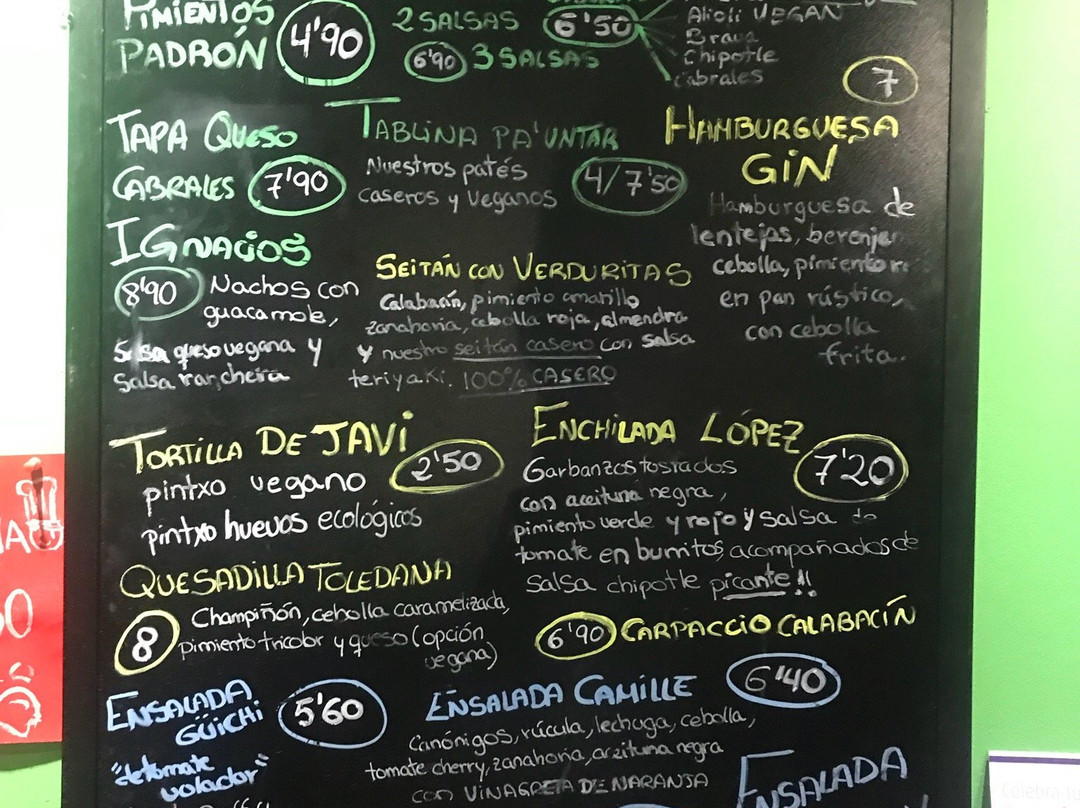 PIMIENTOS
PADRÓN 4'90
2 SALSAS 6'50
6'90 3 SALSAS
Alioli VEGAN
Brava
Chipotle
Cabrales
TAPA QUESO
CABRALES 7'90
TABLINA PA'UNTAR
Nuestros patés
caseros y veganos
4/7'50
7
HAMBURGUESA
GIN
Hamburguesa de
lentejas,
cebolla,
en pan rústico,
con cebolla
frita.
IGNACIOS
8'90 Nachos con
guacamole,
Salsa queso vegana y
salsa ranchera
SEITÁN CON VERDURITAS
Calabacín, pimiento amarillo
zanahoria, cebolla roja, almendra
y nuestro seitán casero con salsa
teriyaki. 100% CASERO
TORTILLA DE JAVI
2'50
pintxo vegano
pintxo huevos ecológicos
ENCHILADA LÓPEZ
7'20
Garbanzos tostados
con aceituna negra,
pimiento verde y rojo y salsa de
tomate en burritos, acompañados de
salsa chipotle picante!!
QUESADILLA TOLEDANA
8
Champiñón, cebolla caramelizada,
pimiento tricolor y queso (opción
vegana)
6'90 CARPACCIO CALABACÍN
ENSALADA
GÜICHI
5'60
"de tomate
volador"
ENSALADA CAMILLE
6'40
Canónigos, rúcula, lechuga, cebolla,
tomate cherry, zanahoria, aceituna negra
con VINAGRETA DE NARANJA
ENSALADA